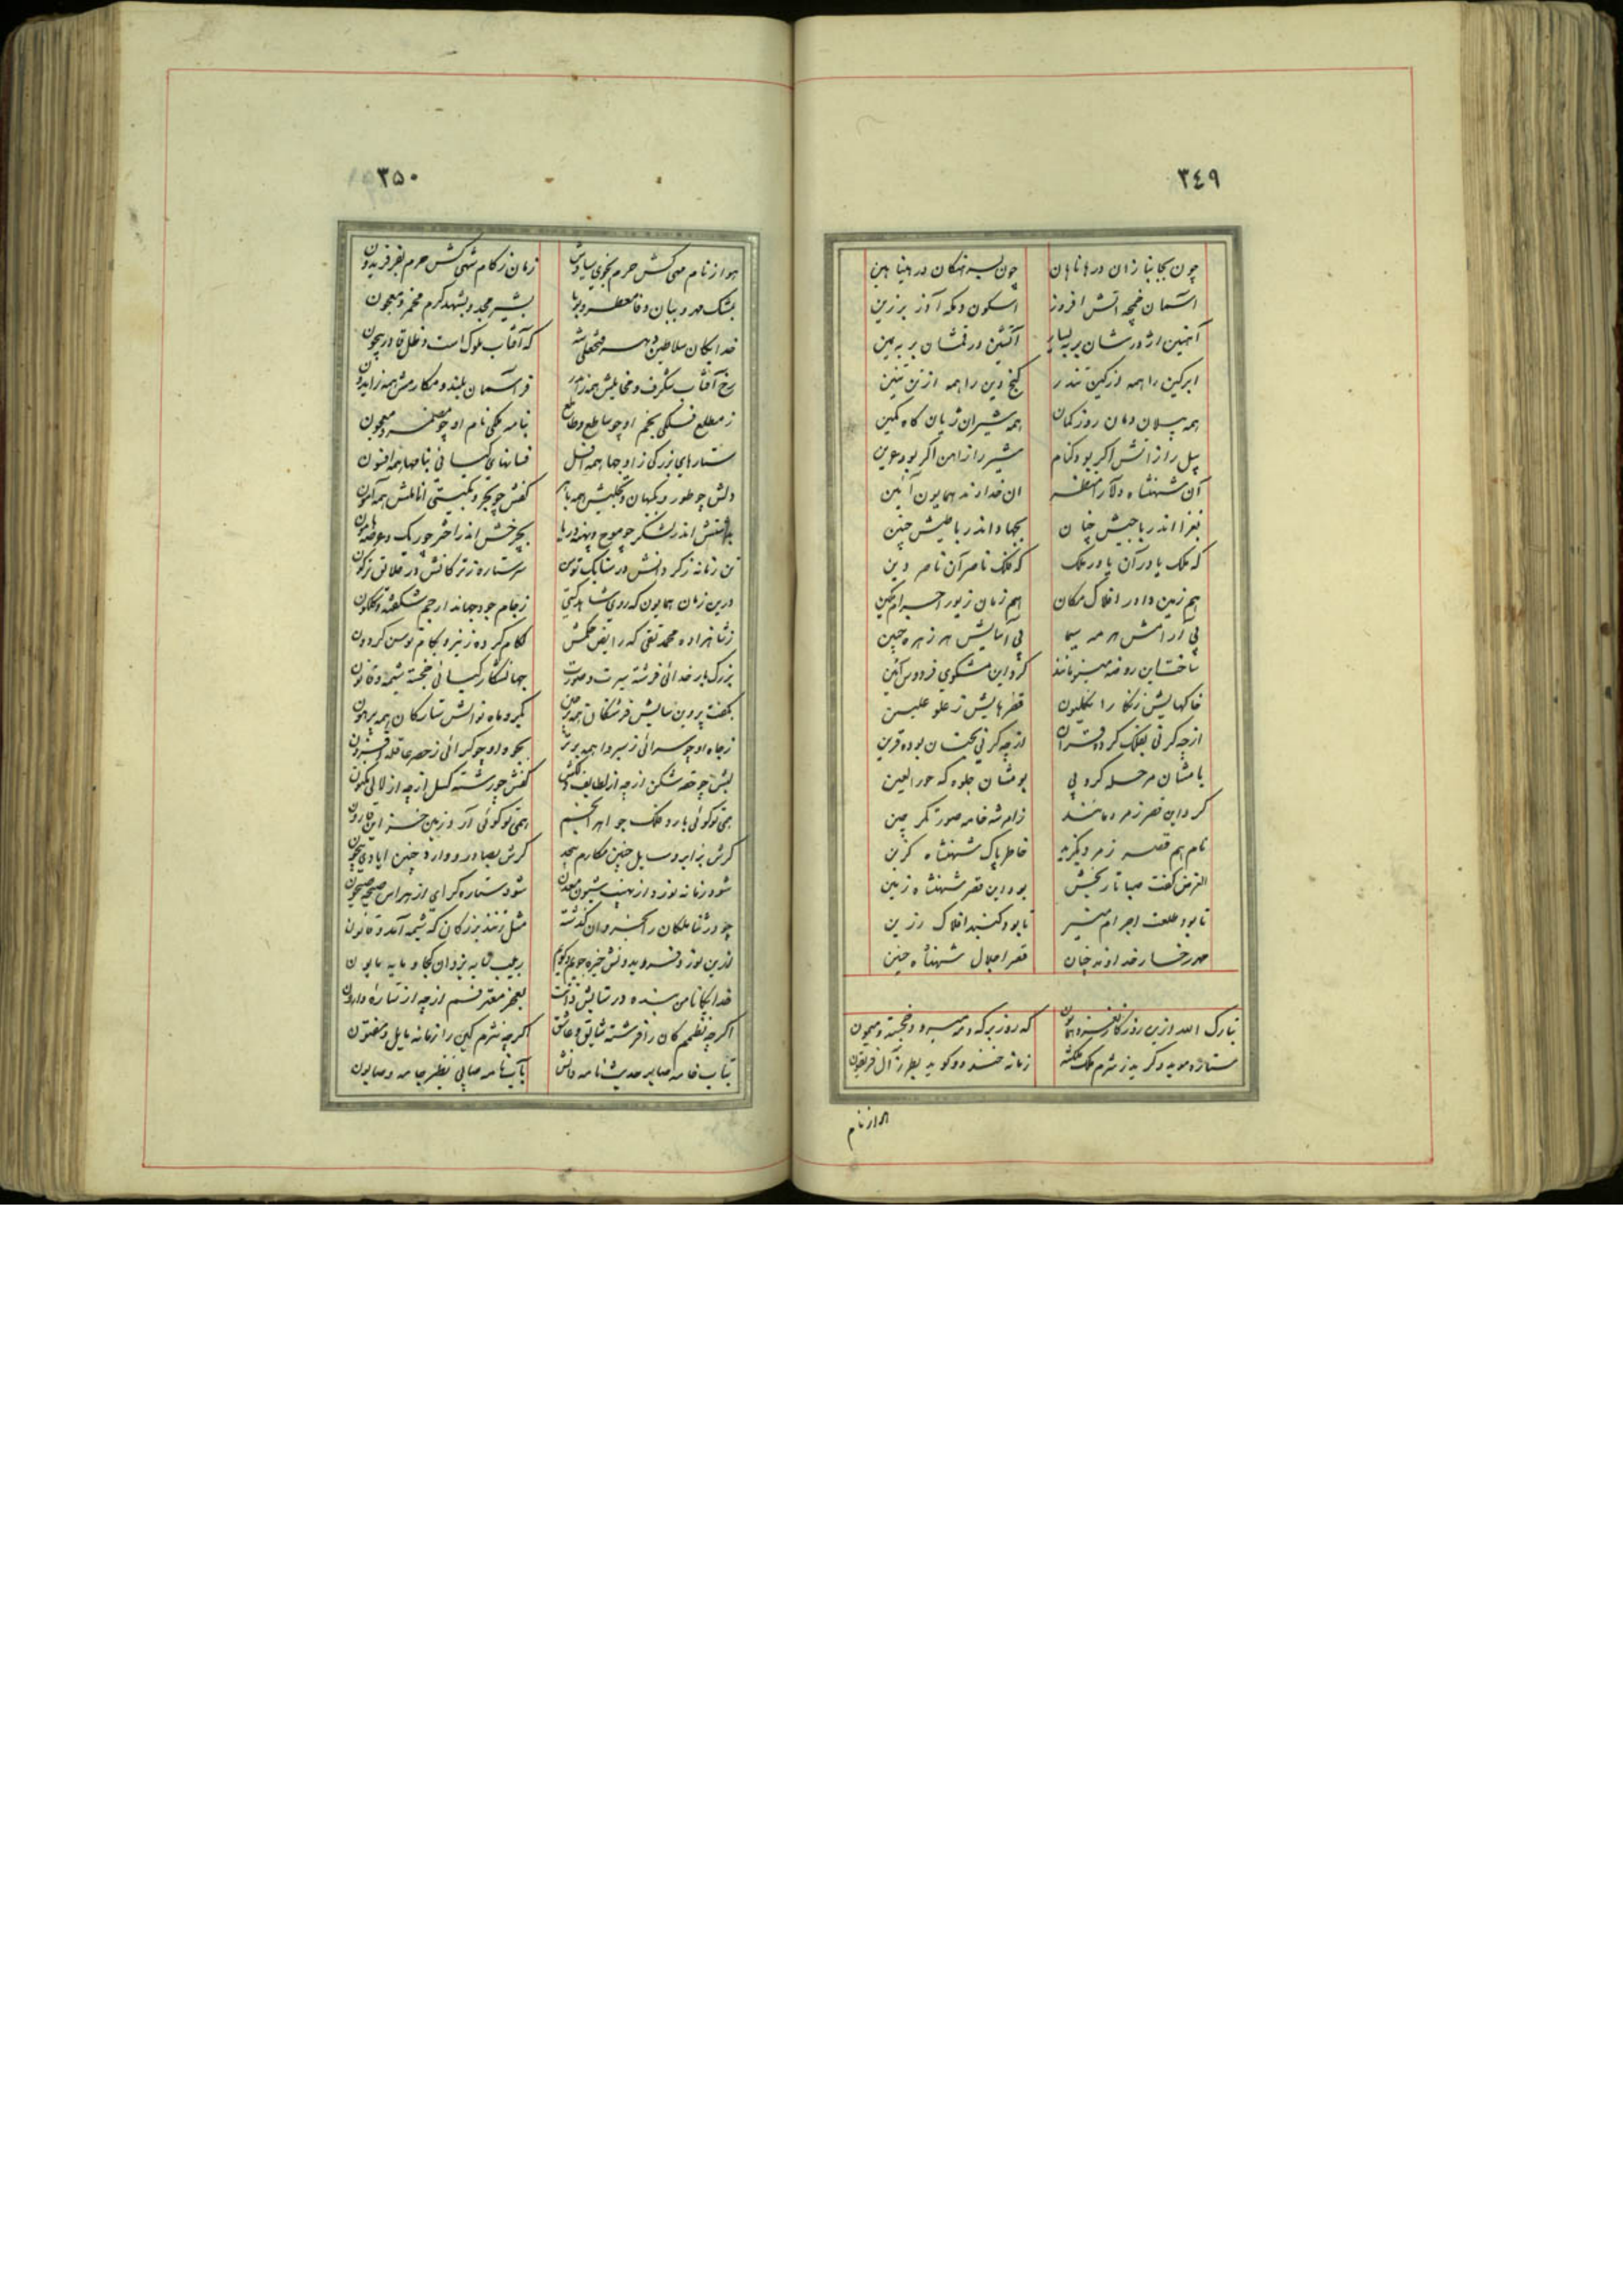 ٣٤٩
چون بجانبازان درها ناهان چون بسرهنگان در هیناهین
آسمان غمچه آتش افروز آسکون دمکه آذر برزین
آهنین اژدرشان بر بیسار آتشین درفشان بر بیمین
ابر کین را همه از کین تندر گنج دین را همه از زین تنین
همه پیلان دمان روز کمان همه شیران ژیان گاه کمین
پیل را ز آتش اگر بود کنام شیر را ز آهن اگر بود عرین
آن شهنشاه دلارا منظر آن خداوند همایون آئین
بغزا اندر با جیش چنان بجهاد اندر با طیش چنین
که ملک یاور آن یاور ملک که فلک ناصر آن ناصر دین
هم زمین داور افلاک مکان هم زمان زیور اجرام مکین
پی آرامش هر مه سیما پی آسایش هر زهره جبین
ساخت این روضه مینو مانند کرد این مشکوی فردوس آئین
خاکهایش زنکارا نکلیون قطرهایش ز علو علیین
از چه کرنی بفلک کرده قران از چه کرنی بجنان بوده قرین
با مشان مرحله کروبی بومشان جلوه که حور العین
کرد این قصر زمرد مانند زامر شه خامه صورتگر چین
نام هم قصر زمرد بگزید خاطر پاک شهنشاه گزین
الغرض گفت صبا تاریخش بود این قصر شهنشاه زمین
تا بود طلعت اجرام منیر تا بود گنبد افلاک رزین
مهر رخسار خداوند چنان قصر اجلال شهنشاه چنین
تبارک الله ازین روزگار نغز و همایون که روز بر که و مه میرود خجسته و میمون
ستاره موید و گرید ز شرم ملک ملکشه زمانه خندد و گوید بطرز آل فریغون
هر از نام
٣٥٠
هوا ز نام مهی کش حرم بخوی سیاوش زمان ز کام شهی کش حرم بفر فریدون
بمشک مهر و بیان وفا معطر و بویا بشیر مجد و بشهد کرم مخمر و معجون
خدایگان سلاطین دهر فتحعلی شه که آفتاب ملوک است و ظل قادر بیچون
رخ آفتاب شگرف و مخایلش همه زاهر فر آسمان بلند و مکارمش همه زاید
ز مطلع فلکی نجم او چو ساطع و طالع بنامه ملکی نام او چو مضمر و معجون
ستارهای بزرگی ز اوجها همه افل فسانهای کیانی بنامها همه افسون
دلش چو طور و بکیهان تجلیش همه باهر کفش چو بحر و بگیتی اناملش همه آمون
بدانشش اندر لشکر چو موج و پهنه دریا بچرخش اندر اختر چو ریک و عرصه هامون
تن زمانه ز گرد انش در سنابک توسن سر ستاره ز ترکانش در علایق ترکون
درین زمان همایون که روی شاهد گیتی ز جام جود جهاندار جم شکفته و گلگون
ز شاهزاده محمد تقی که رایض حکمش لگام کرده ز نیرو بکام توسن گردون
بزرگ بار خدائی فرشته سیرت و صورت جهانگشا ر کیانی خجسته شیمه و قانون
ز جاه او چو سرائی ز سیر و اهمه برتر بجود او چو گدائی ز حصر عاقله افزون
لبش چو حقه شکن از چه از لطایف دلکش کفش چو رشته گسل از چه از لالی مکنون
همی تو گوئی بارد فلک جواهر انجم همی تو گوئی آرد زمین خزاین قارون
گرش بزایر و سایل چنین مکارم بیحد گرش بصادر و وارد چنین ایادی بیچون
شود زمانه نورد از نهیب شیون معدن شود ستاره گرای از هراس صیحه جیحون
چو در ثنا ملکان را ز خسروان گذشته مثل زنند بزرگان که شیمه آمد و قانون
خدایگانا من بنده در ستایش ذاتت بعجز معترفستم از چه از ستاره وارون
اگرچه نظمم کان را فرشته شایق و عاشق اگرچه نثرم کین را زمانه مایل و مفتون